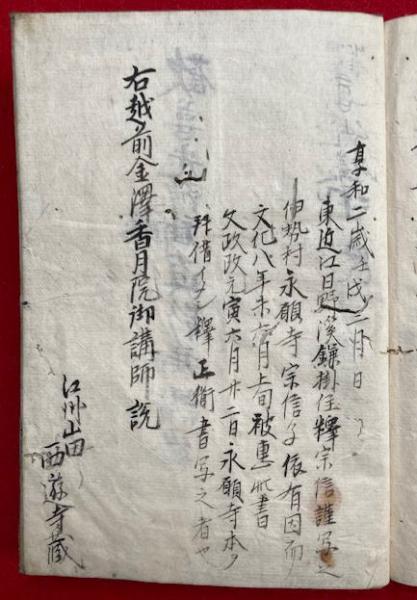 享和二歳壬戌二月日
東近江日野渓鎌掛住釋宗信謹写之
伊勢村永願寺宗信子依有因而
文化八年未六月上旬被恵此書
文政改元寅六月廿二日永願寺本ヲ
拜借イタシ釋正衛書写之者也
右越前金澤香月院御講師説
江州山田
西遊寺蔵